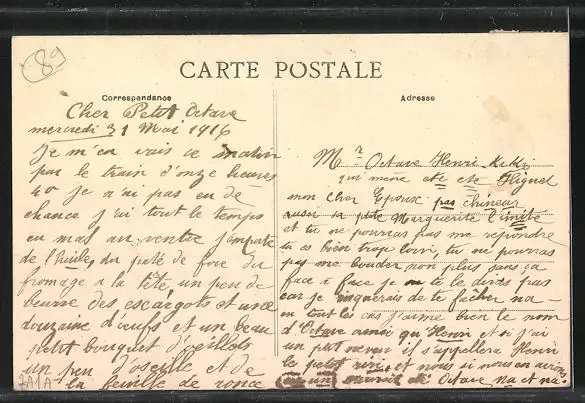 89
CARTE POSTALE
Correspondance
Adresse
Cher Petit Octave
mercredi 31 Mai 1916
Je m'en vais ce matin
par le train d'onze heures
40 je n'ai pas eu de
chance j'ai tout le temps
eu mal au ventre j'emporte
de l'huile, du pâté de foie du
fromage a la tête, un peu de
beurre des escargots et une
douzaine d'œufs et un beau
petit bouquet d'œillets
un peu d'oseille et de
la feuille de ronce
Mr Octave Henri
qui mène
mon cher Epouse pas chineur
aussi sa ptite Marguerite l'imite
et tu ne pourras pas me répondre
tu es bien trop loin, tu ne pourras
pas me bouder non plus sans ça
face à face je ne te le dirais pas
car je risquerais de te fâcher na
en tout les cas j'aime bien le nom
d'Octave ainsi qu'Henri et si j'ai
un ptit neveu il s'appellera Henri
le petit et nous si nous en avons
un Octave na et na